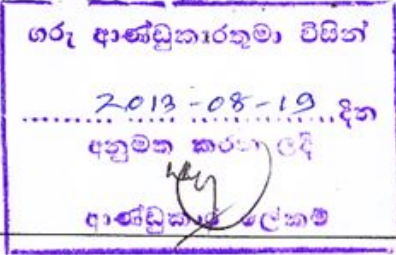 ගරු ආණ්ඩුකාරතුමා විසින්
2013-08-19 දින
අනුමත කරන ලදී
ආණ්ඩුකාර ලේකම්